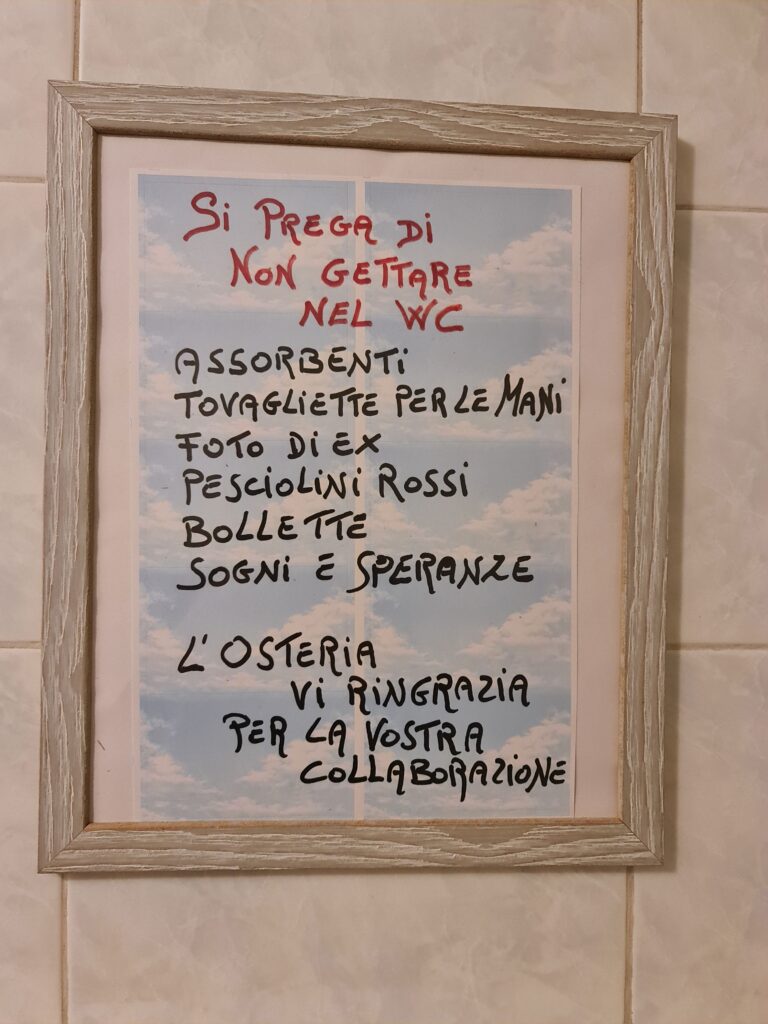 Si PREGA Di
NON GETTARE
NEL WC
ASSORBENTi
TOVAGLIETTE PER LE MANi
FOTO Di EX
PESCIOLINI ROSSI
BOLLETTE
SOGNi E SPERANZE
L'OSTERIA
Vi RINGRAZIA
PER LA VOSTRA
COLLABORAZIONE